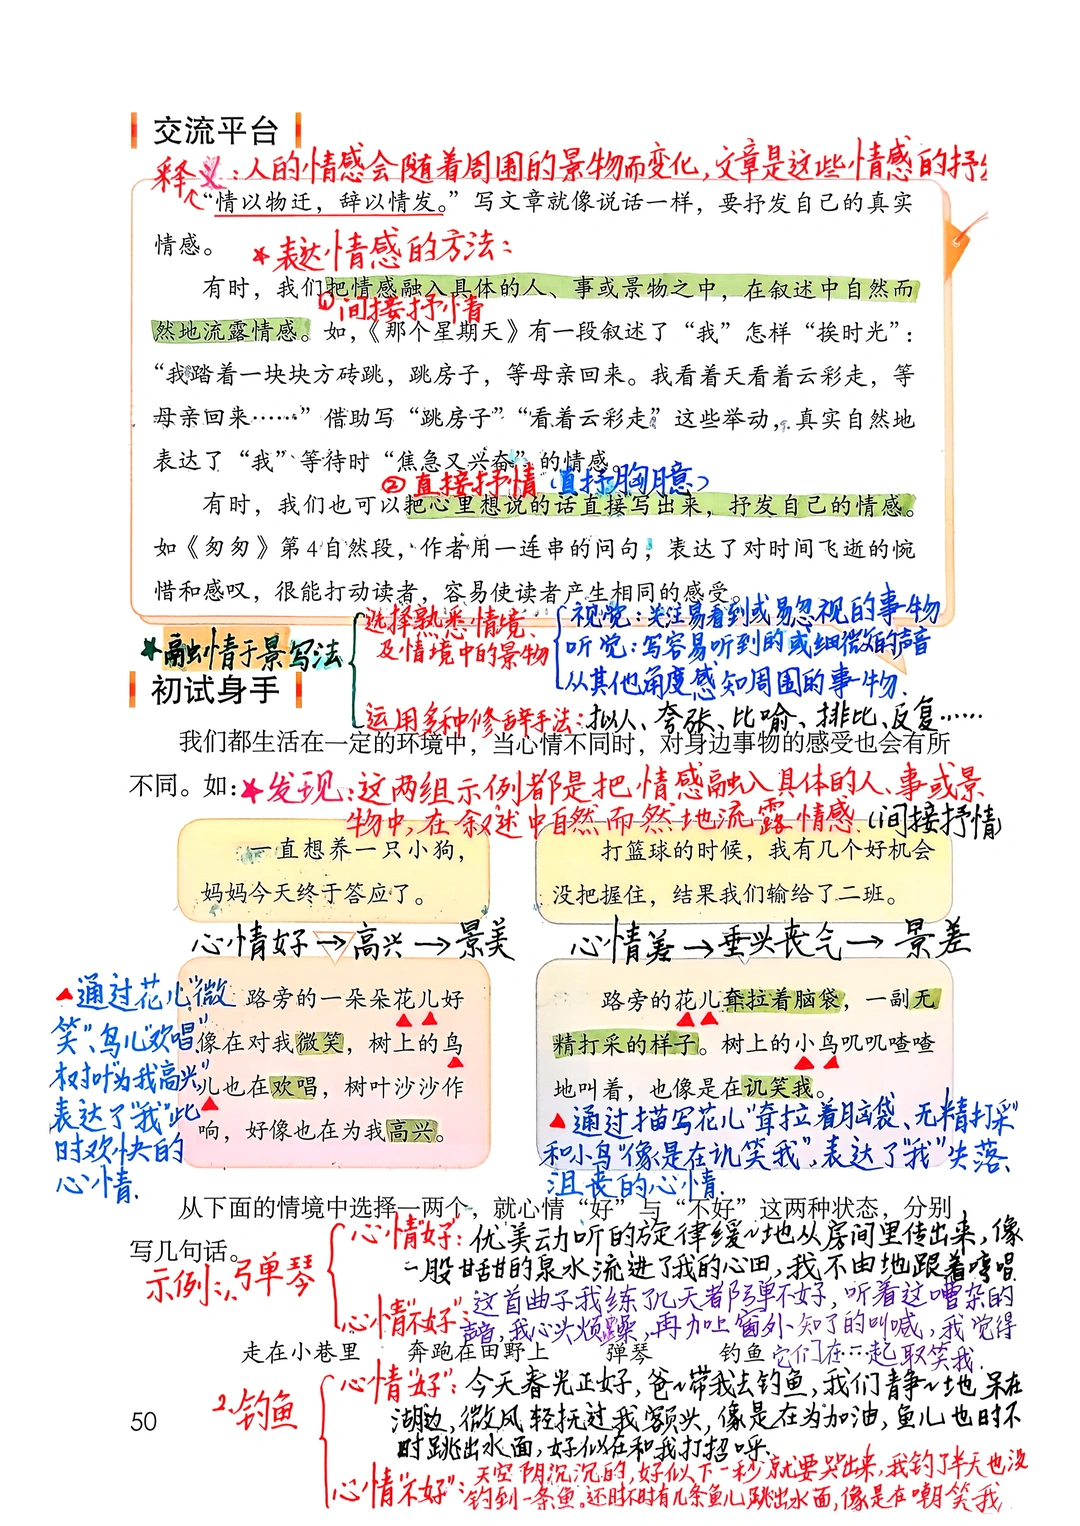 交流平台
释义:人的情感会随着周围的景物而变化,文章是这些情感的抒发
“情以物迁，辞以情发。”写文章就像说话一样，要抒发自己的真实
情感。
*表达情感的方法:
有时，我们把情感融入具体的人、事或景物之中，在叙述中自然而
①间接抒情
然地流露情感。如，《那个星期天》有一段叙述了“我”怎样“挨时光”：
“我踏着一块块方砖跳，跳房子，等母亲回来。我看着天看着云彩走，等
母亲回来……”借助写“跳房子”“看着云彩走”这些举动，真实自然地
表达了“我”等待时“焦急又兴奋”的情感。
②直接抒情(直抒胸臆)
有时，我们也可以把心里想说的话直接写出来，抒发自己的情感。
如《匆匆》第4自然段，作者用一连串的问句，表达了对时间飞逝的惋
惜和感叹，很能打动读者，容易使读者产生相同的感受。
*融情于景写法
选择熟悉情境、
及情境中的景物
视觉:关注易看到或易忽视的事物
听觉:写容易听到的或细微的声音
从其他角度感知周围的事物.
运用多种修辞手法:拟人、夸张、比喻、排比、反复……
初试身手
我们都生活在一定的环境中，当心情不同时，对身边事物的感受也会有所
不同。如：
*发现:这两组示例都是把情感融入具体的人、事或景
物中,在叙述中自然而然地流露情感.(间接抒情)
一直想养一只小狗，
妈妈今天终于答应了。
心情好→高兴→景美
路旁的一朵朵花儿好
像在对我微笑，树上的鸟
儿也在欢唱，树叶沙沙作
响，好像也在为我高兴。
▲通过花儿“微
笑”、鸟儿“欢唱”
树叶“为我高兴”,
表达了“我”此
时欢快的
心情.
打篮球的时候，我有几个好机会
没把握住，结果我们输给了二班。
心情差→垂头丧气→景差
路旁的花儿耷拉着脑袋，一副无
精打采的样子。树上的小鸟叽叽喳喳
地叫着，也像是在讥笑我。
▲通过描写花儿“耷拉着脑袋、无精打采”
和小鸟“像是在讥笑我”,表达了“我”失落、
沮丧的心情.
从下面的情境中选择一两个，就心情“好”与“不好”这两种状态，分别
写几句话。
示例:1.弹琴
心情“好”:优美动听的旋律缓~地从房间里传出来,像
一股甘甜的泉水流进了我的心田,我不由地跟着哼唱
心情“不好”:这首曲子我练了几天都弹不好,听着这嘈杂的
声音,我心头烦躁,再加上窗外知了的叫喊,我觉得
它们在一起取笑我.
走在小巷里　奔跑在田野上　弹琴　钓鱼
2.钓鱼
心情“好”:今天春光正好,爸~带我去钓鱼,我们静~地呆在
湖边,微风轻抚过我额头,像是在为加油,鱼儿也时不
时跳出水面,好似在和我打招呼.
心情“不好”:天空阴沉沉的,好似下一秒就要哭出来,我钓了半天也没
钓到一条鱼。还时不时有几条鱼儿跳出水面,像是在嘲笑我
50